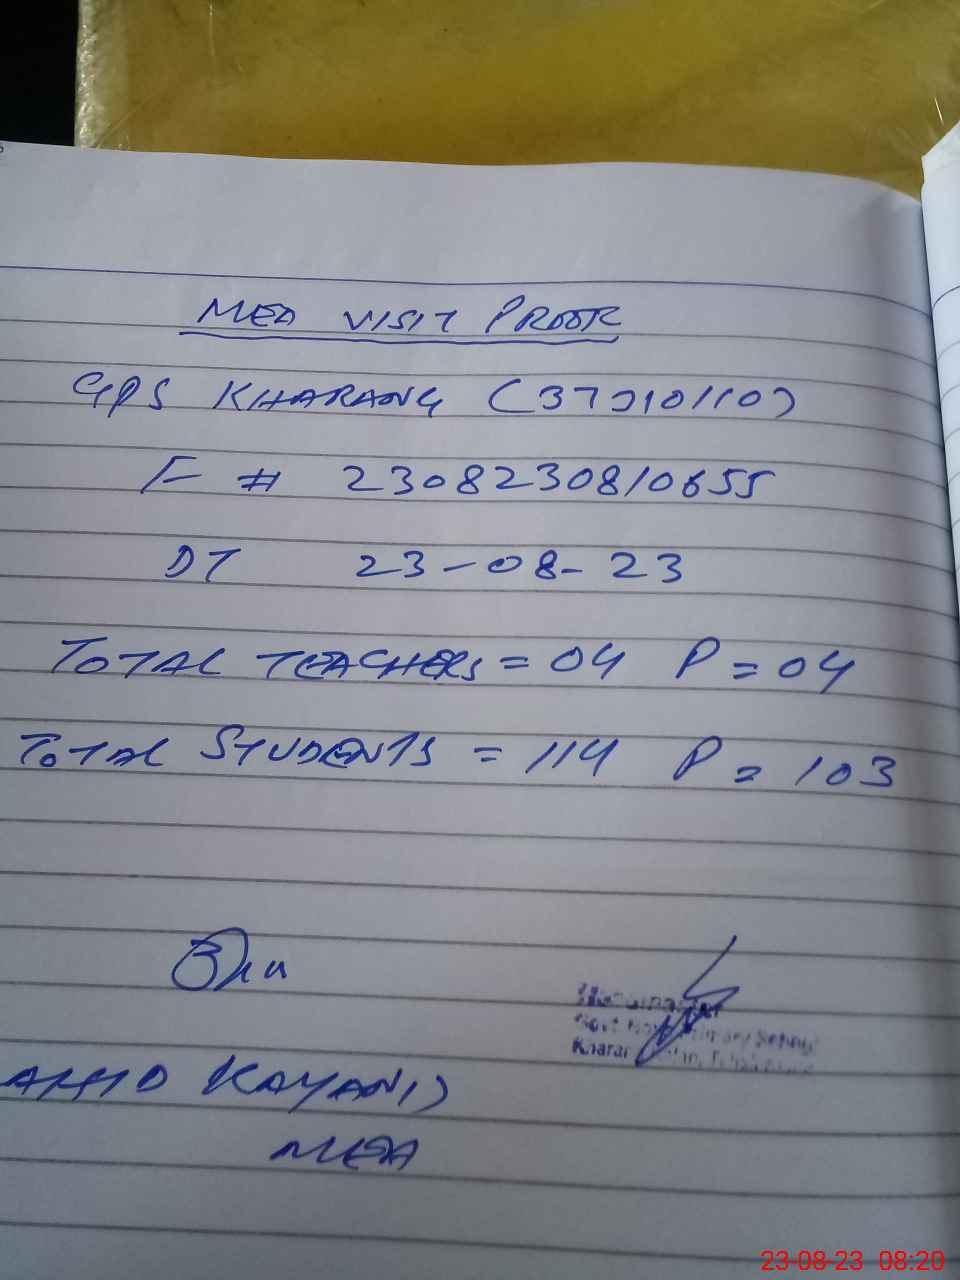 MEA VISIT PROOF
GPS KHARANG (37310110)
F # 2308230810655
DT 23-08-23
TOTAL TEACHERS = 04 P = 04
TOTAL STUDENTS = 114 P = 103
Govt. Primary School
KAYANI
MEA
23-08-23 08:20